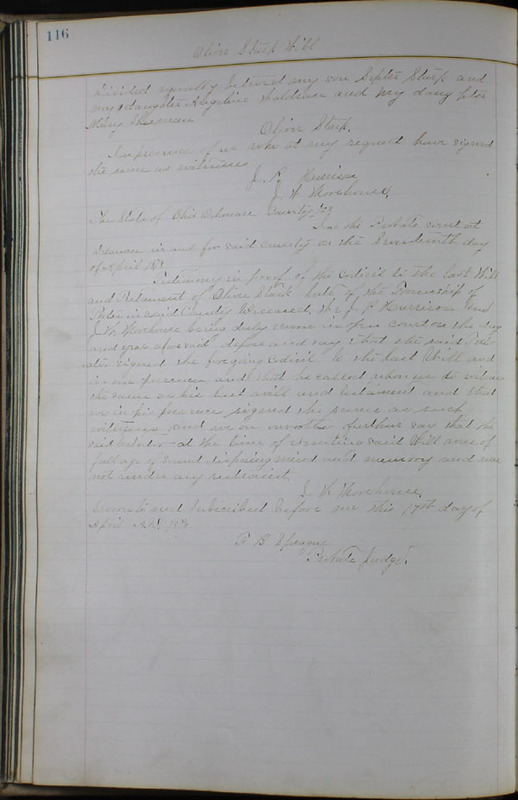 116
Oliver Stark Will
divided equally between my son Septer Stark and
my daughter Angeline and my daughter
Mary
Oliver Stark
In presence of us who at my request have signed
the same as witnesses
J. P. Harrison
J. H. Morehouse
The State of Ohio Delaware County ss
In the Probate court at
Delaware in and for said county on the Seventeenth day
of April
Testimony in proof of the codicil to the last Will
and Testament of Oliver Stark late of the Township of
in said county Deceased. We J. P. Harrison and
J. H. Morehouse being duly sworn in open court on the day
and year aforesaid depose and say that the said
signed the foregoing codicil to the last Will and
in our presence and that he called upon us to witness
the same as his last will and testament and that
we in his presence signed the same as such
witnesses and we on our oaths further say that the
said testator at the time of executing said Will was of
full age of sound disposing mind and memory and was
not under any restraint
J. H. Morehouse
Sworn to and Subscribed before me this 17th day of
April A.D.
B Sprague
Probate Judge